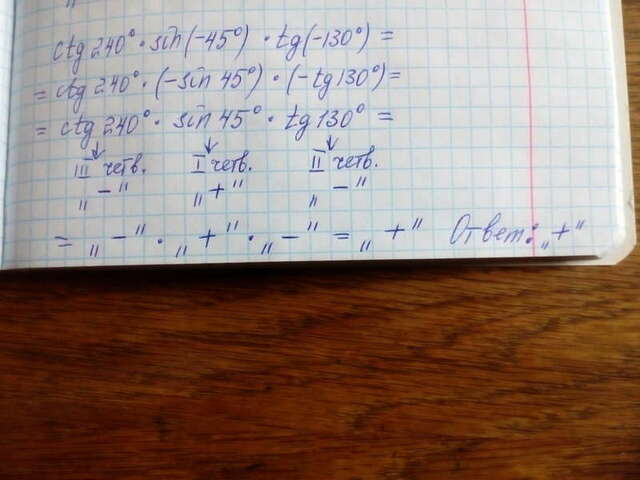 ctg 240° · sin(-45°) · tg(-130°) =
= ctg 240° · (-sin 45°) · (-tg 130°) =
= ctg 240° · sin 45° · tg 130° =
↓ ↓ ↓
III четв. I четв. II четв.
„ - " „ + " „ - "
= „ - " · „ + " · „ - " = „ + " Ответ: „ + "